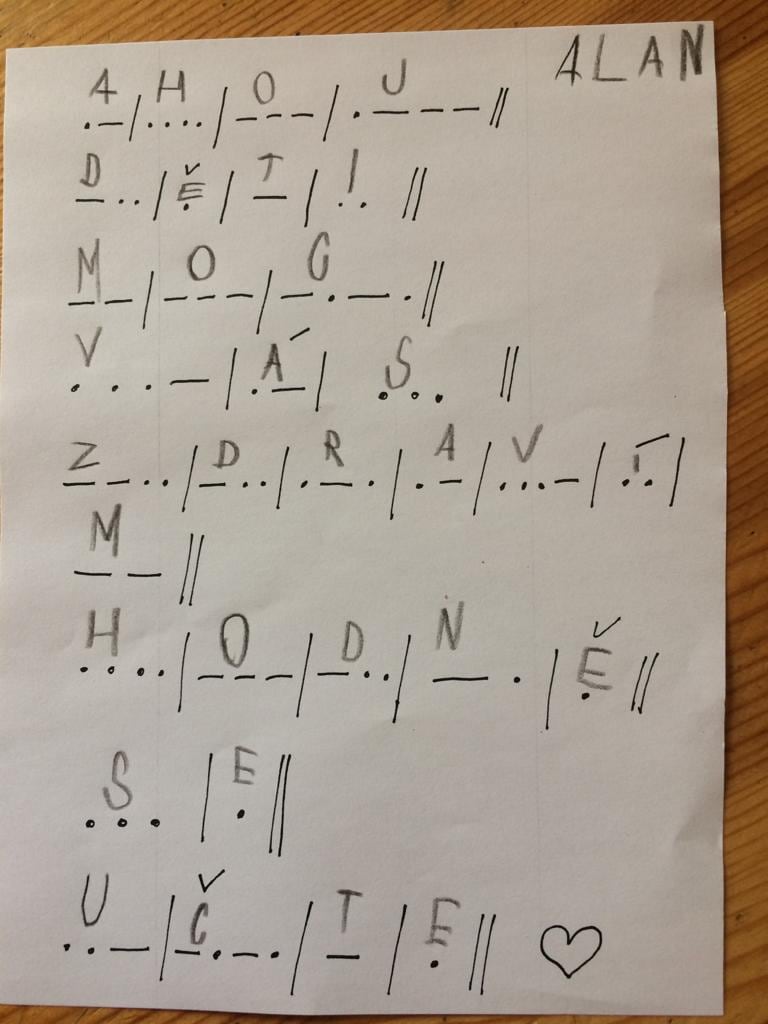 ALAN
A H O J
.-/..../---/.---//
D Ě T I
-../. /-/..//
M O C
--/---/-.-.//
V Á S
...-/.-/...//
Z D R A V Í
--../-../.-./.-/...-/../
M
--//
H O D N Ě
..../---/-../-././/
S E
..././/
U Č T E
..-/-.-./-/.// ♡